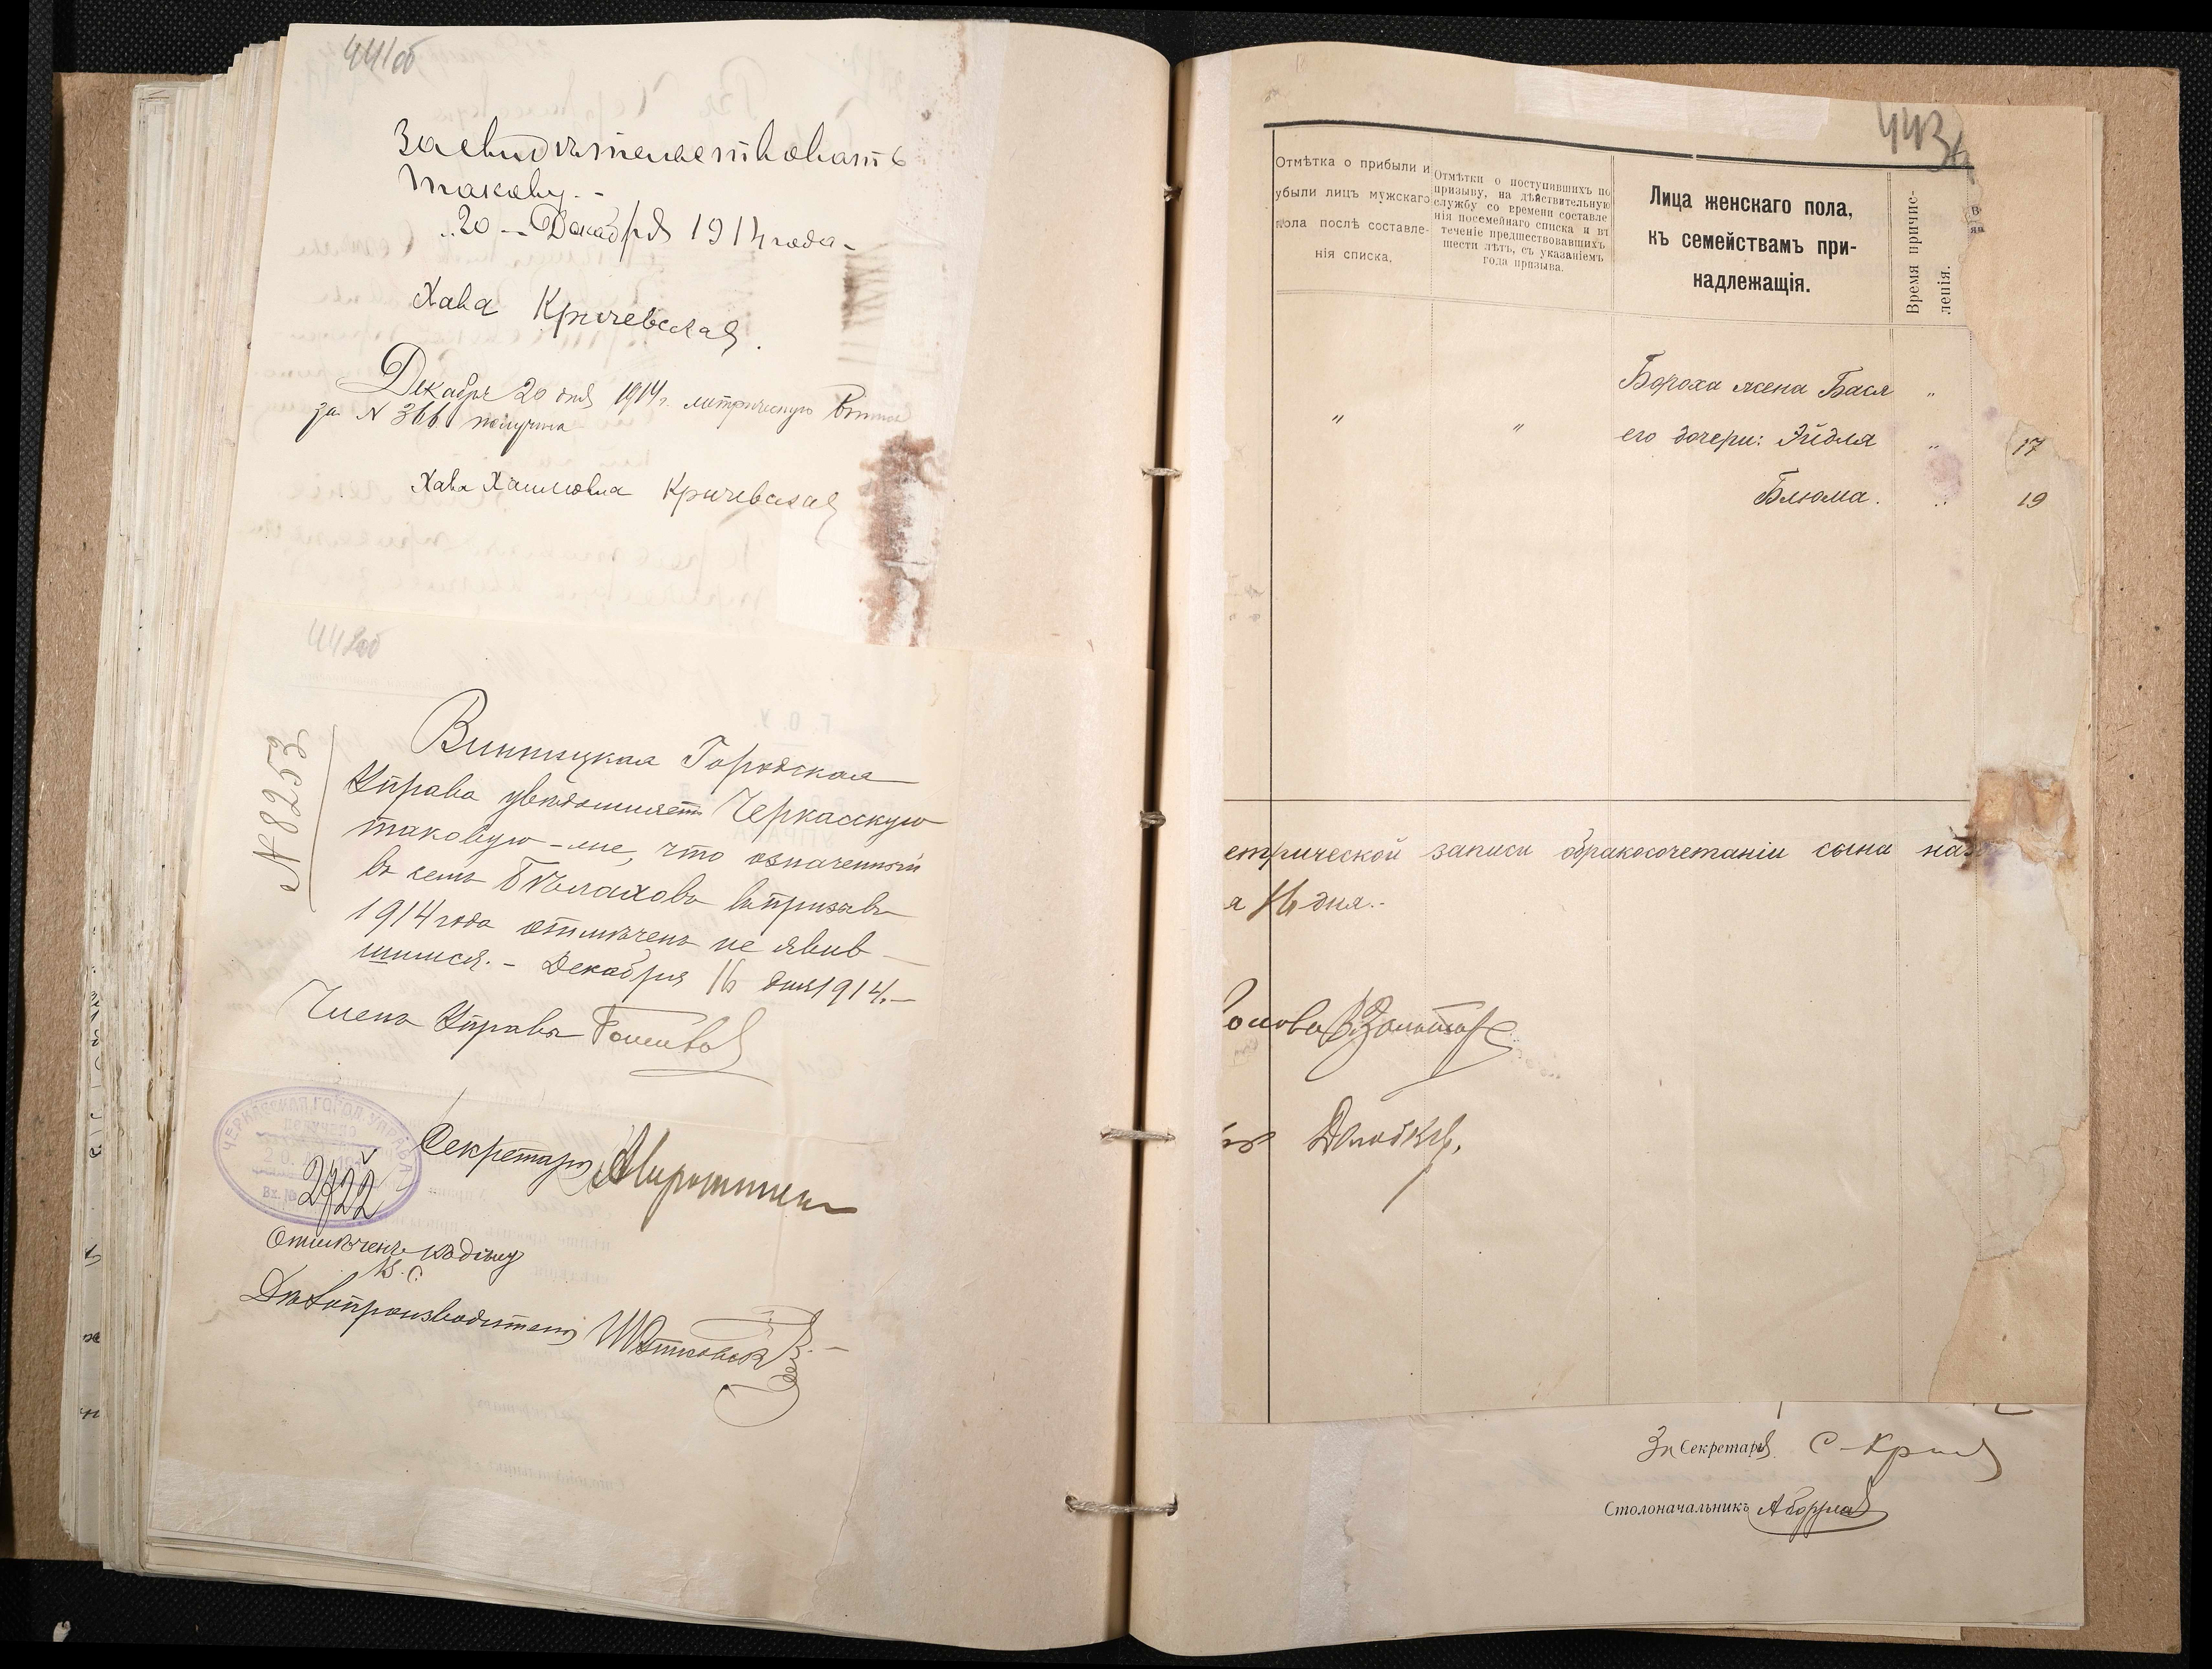 441об
Засвидѣтельствовать
такову. -
20 - Декабря 1914 года -
Хава Кричевская.
Декабря 20 дня 1914 г. метрическую
за № 366 получила
Хава Кричевская
442об
№ 8253
Винницкая Городская
Управа увѣдомляетъ Черкасскую
таковую-же, что означенный
въ семъ въ призывъ
1914 года отмѣченъ не явив-
шимся. - Декабря 16 дня 1914. -
Членъ Управы
Секретарь
ЧЕРКАССКАЯ ГОРОД. УПРАВА
ПОЛУЧЕНО
20. 191
Вх. №
2822
Отмѣченъ
Дѣлопроизводитель
443
Отмѣтка о прибыли и
убыли лицъ мужскаго
пола послѣ составле-
нія списка.
Отмѣтки о поступившихъ по
призыву, на дѣйствительную
службу со времени составле
нія посемейнаго списка и въ
теченіе предшествовавшихъ
шести лѣтъ, съ указаніемъ
года призыва.
Лица женскаго пола,
къ семействамъ при-
надлежащія.
Время причис-
ленія.
Бороха жена Бася "
" " его дочери: Эйдля " 17
Блюма. " 19
етрической записи о бракосочетаніи сына на
я 16 дня. -
За Секретаря
Столоначальникъ